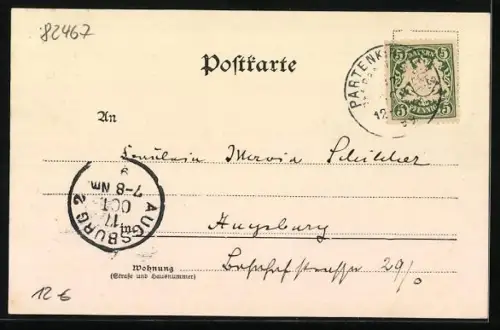 82467
Postkarte
PARTENK
12
5 5
An
Fräulein Maria Schilcher
AUGSBURG 2
17
OCT
7-8 Nm
9
in
Augsburg
Wohnung
(Straße und Hausnummer)
Bahnhofstrasse 29/0
12 €